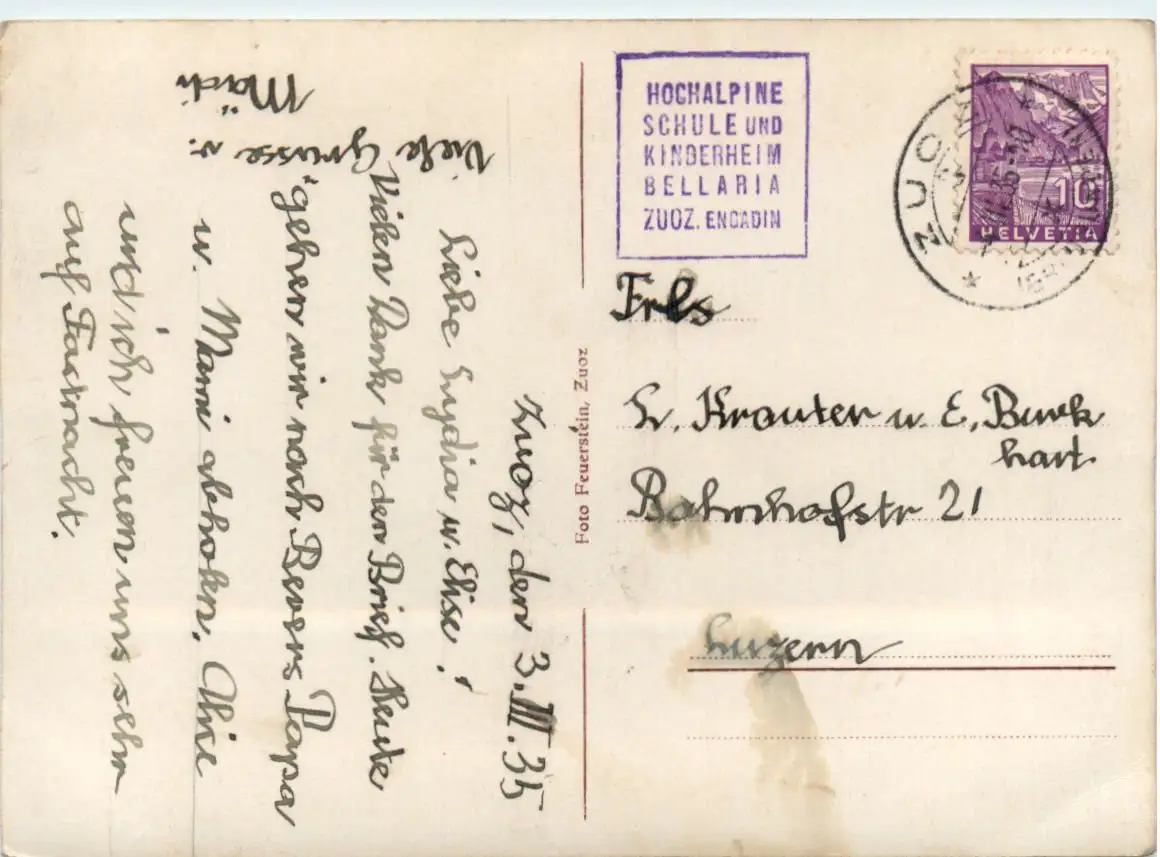 Zuoz, den 3.III.35
Liebe Lydia u. Elise!
Vielen Dank für den Brief. Heute
gehen wir nach Bevers Papa
u. Mami abholen. Ursi
und ich freuen uns sehr
auf Fastnacht.
Viele Grüsse v.
Mädi
Foto Feuerstein, Zuoz
HOCHALPINE
SCHULE UND
KINDERHEIM
BELLARIA
ZUOZ. ENGADIN
ZUOZ
10
HELVETIA
Frls
L. Krauter u. E. Burk
hart
Bahnhofstr 21
Luzern